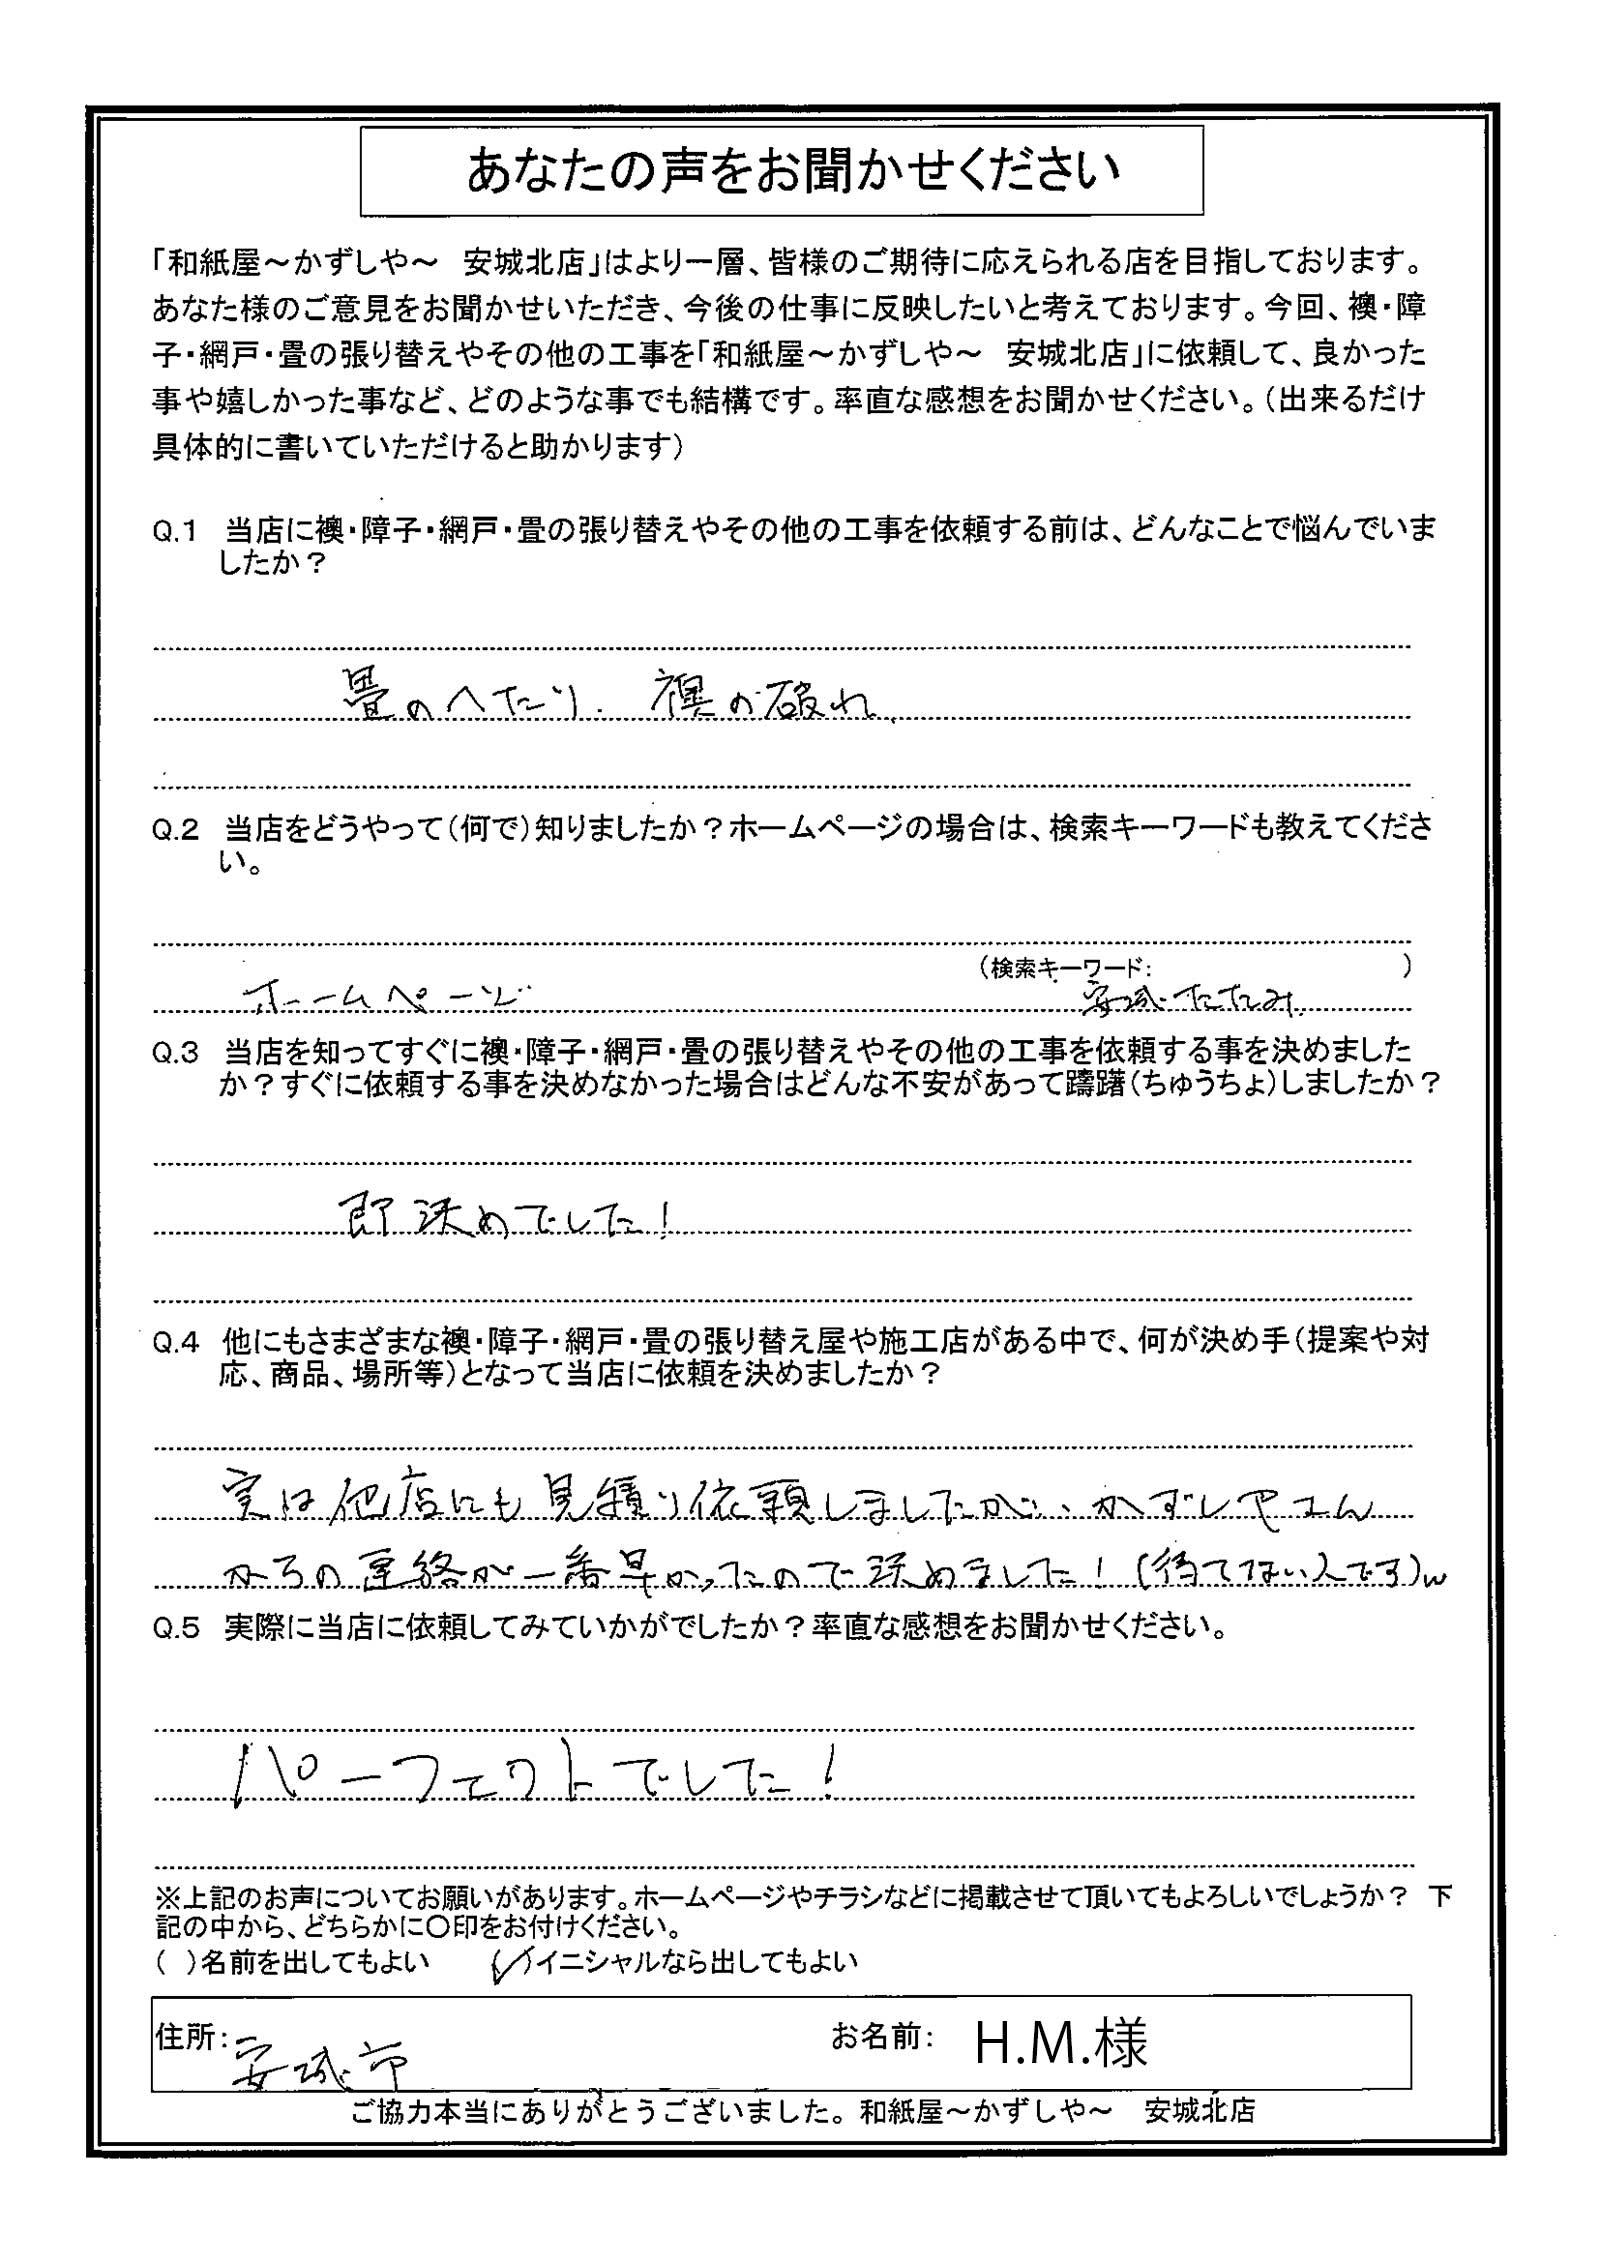 あなたの声をお聞かせください
「和紙屋～かずしや～　安城北店」はより一層、皆様のご期待に応えられる店を目指しております。
あなた様のご意見をお聞かせいただき、今後の仕事に反映したいと考えております。今回、襖・障
子・網戸・畳の張り替えやその他の工事を「和紙屋～かずしや～　安城北店」に依頼して、良かった
事や嬉しかった事など、どのような事でも結構です。率直な感想をお聞かせください。（出来るだけ
具体的に書いていただけると助かります）
Q.1　当店に襖・障子・網戸・畳の張り替えやその他の工事を依頼する前は、どんなことで悩んでいま
したか？
畳のへたり．襖の破れ
Q.2　当店をどうやって（何で）知りましたか？ホームページの場合は、検索キーワードも教えてくださ
い。
（検索キーワード：　　　　　　）
ホームページ　安城・たたみ
Q.3　当店を知ってすぐに襖・障子・網戸・畳の張り替えやその他の工事を依頼する事を決めました
か？すぐに依頼する事を決めなかった場合はどんな不安があって躊躇（ちゅうちょ）しましたか？
即決めでした！
Q.4　他にもさまざまな襖・障子・網戸・畳の張り替え屋や施工店がある中で、何が決め手（提案や対
応、商品、場所等）となって当店に依頼を決めましたか？
実は他店にも見積り依頼しましたが、かずしやさん
からの連絡が一番早かったので決めました！（待てない人です）w
Q.5　実際に当店に依頼してみていかがでしたか？率直な感想をお聞かせください。
パーフェクトでした！
※上記のお声についてお願いがあります。ホームページやチラシなどに掲載させて頂いてもよろしいでしょうか？　下
記の中から、どちらかに○印をお付けください。
（　）名前を出してもよい　　（✓）イニシャルなら出してもよい
住所：安城市　お名前：　H.M.様
ご協力本当にありがとうございました。和紙屋～かずしや～　安城北店